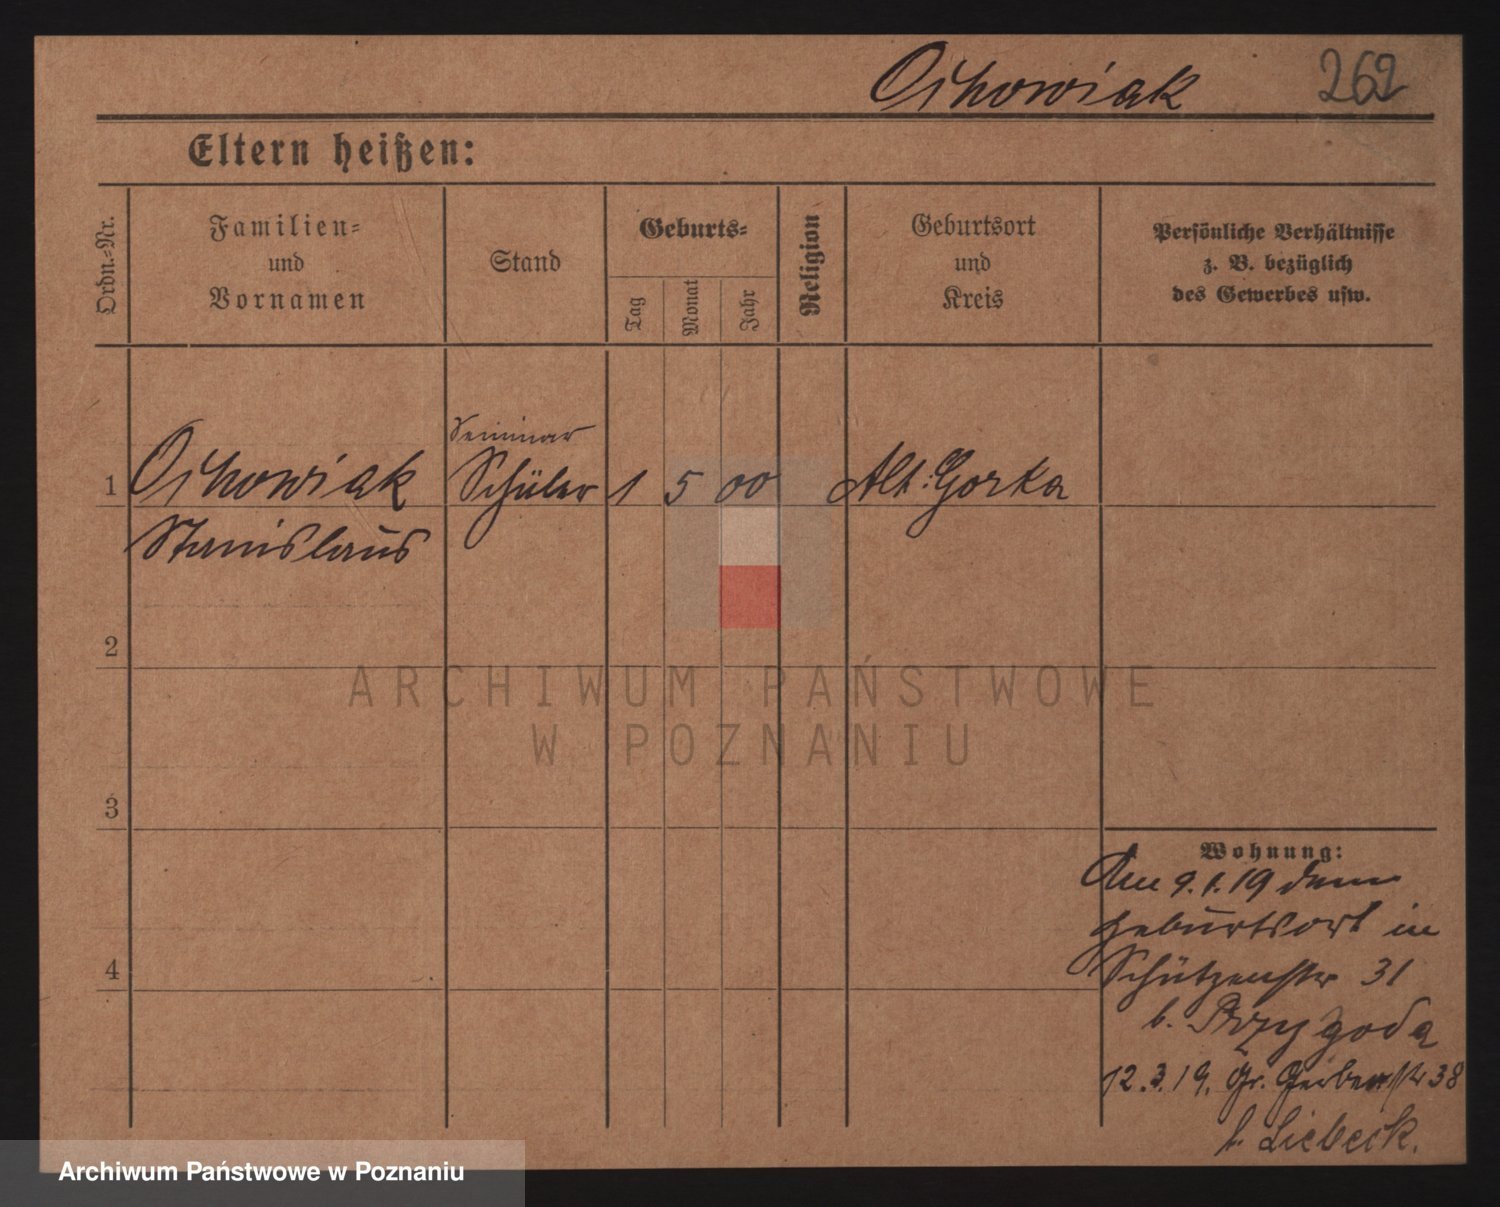 Cichowiak 262
Eltern heißen:
Ordn.-Nr.
Familien=
und
Vornamen
Stand
Geburts=
Tag
Monat
Jahr
Religion
Geburtsort
und
Kreis
Persönliche Verhältnisse
z. B. bezüglich
des Gewerbes usw.
Seminar
1 Cichowiak Schüler 1 5 00 Alt: Gorka
Stanislaus
2
ARCHIWUM PAŃSTWOWE
W POZNANIU
3
4
Wohnung:
Am 9.1.19 dem
Geburtsort in
Schützenstr 31
b. Przygoda
12.3.19. Gr. Gerberstr 38
b. Liebeck.
Archiwum Państwowe w Poznaniu